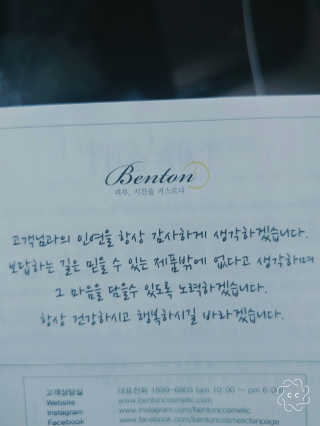 Benton
피부, 시간을 거스르다
고객님과의 인연을 항상 감사하게 생각하겠습니다.
보답하는 길은 믿을 수 있는 제품밖에 없다고 생각하며
그 마음을 담을수 있도록 노력하겠습니다.
항상 건강하시고 행복하시길 바라겠습니다.
고객상담실 대표전화 am 10:00 ~ pm 6:00
Website www.bentoncosmetic.com
Instagram www.instagram.com/bentoncosmetic
Facebook